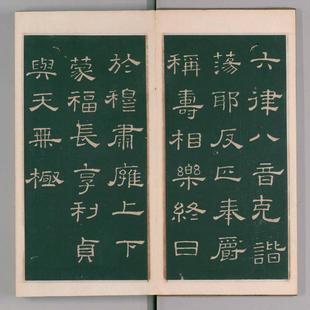 六律八音克諧
蕩耶反正奉爵
稱壽相樂終日
於穆肅廱上下
蒙福長享利貞
與天無極